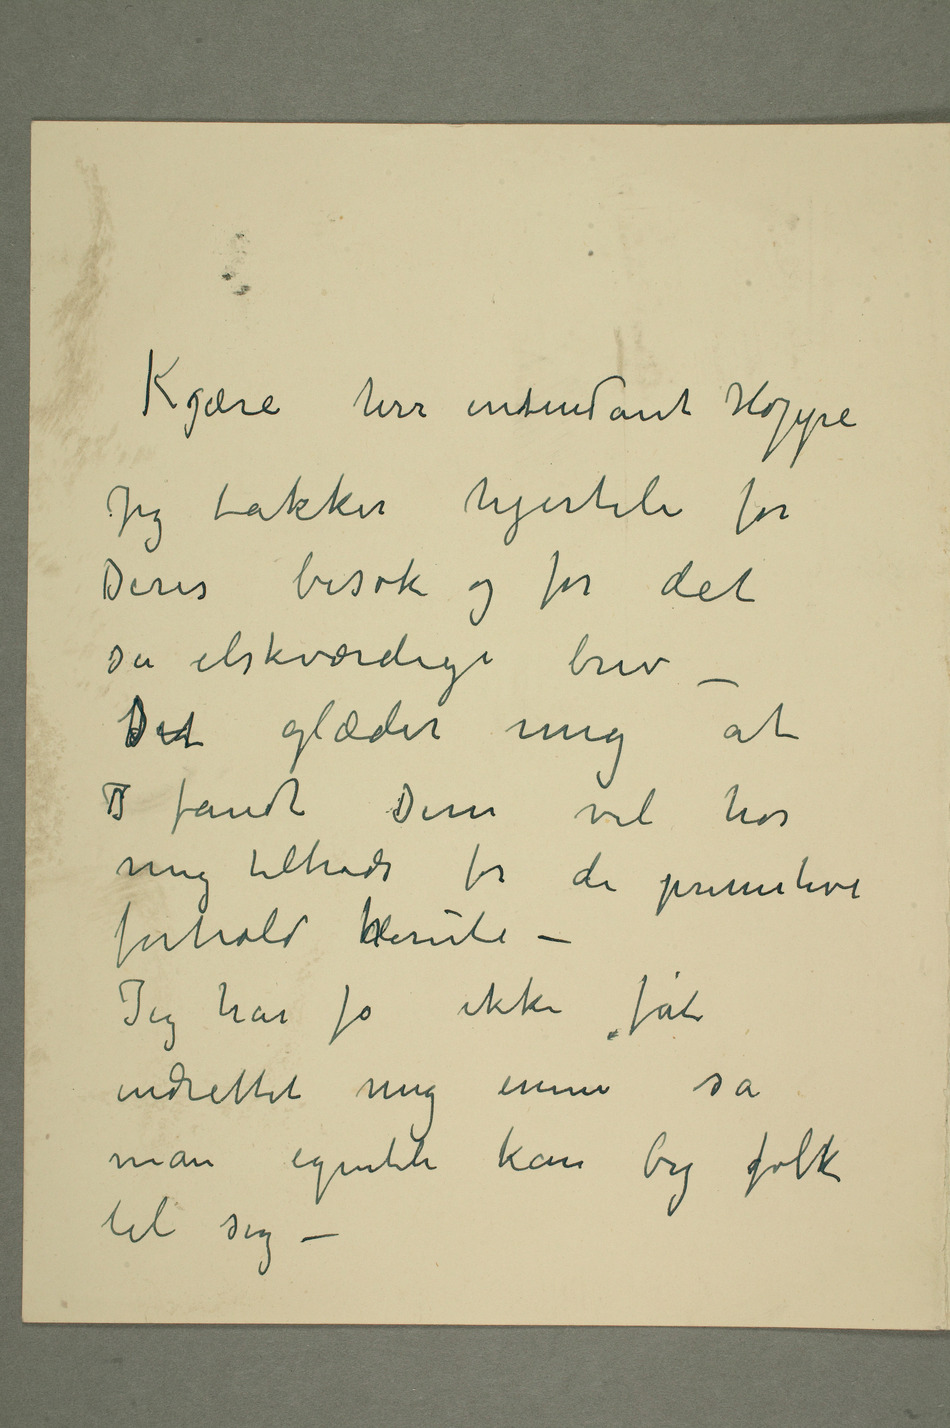 Kjære herr intendant Hoppe
Jeg takker hjerteli for
Deres besøk og for det
så elskværdige brev –
Det glæder mig at
I fandt Dem vel hos
mig tiltrods for de primitive
forhold herute –
Jeg har jo ikke fåt
indrettet mig ennu så
man egentli kan by folk
til sig –